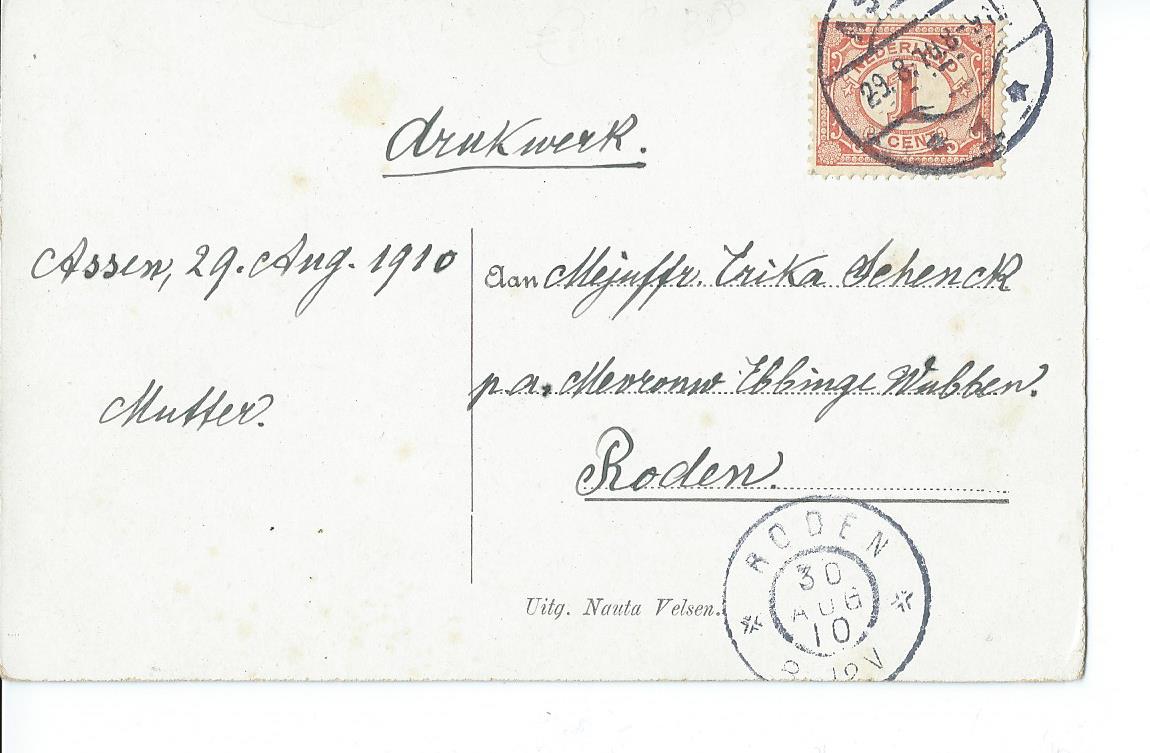 NEDERLAND
1
CENT
29.8.10
drukwerk.
Assen, 29. Aug. 1910
Mutter.
Aan Mejuffr. Erika Schenck
p.a. Mevrouw Ebbinge Wubben.
Roden.
Uitg. Nauta Velsen.
RODEN
30
AUG
10